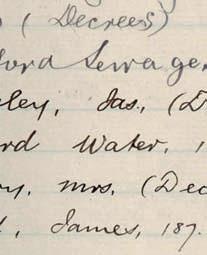 (Decrees)
ord Sewage
ley, Jas., (D
rd Water, 1
y, Mrs, (Dec
, James, 187.